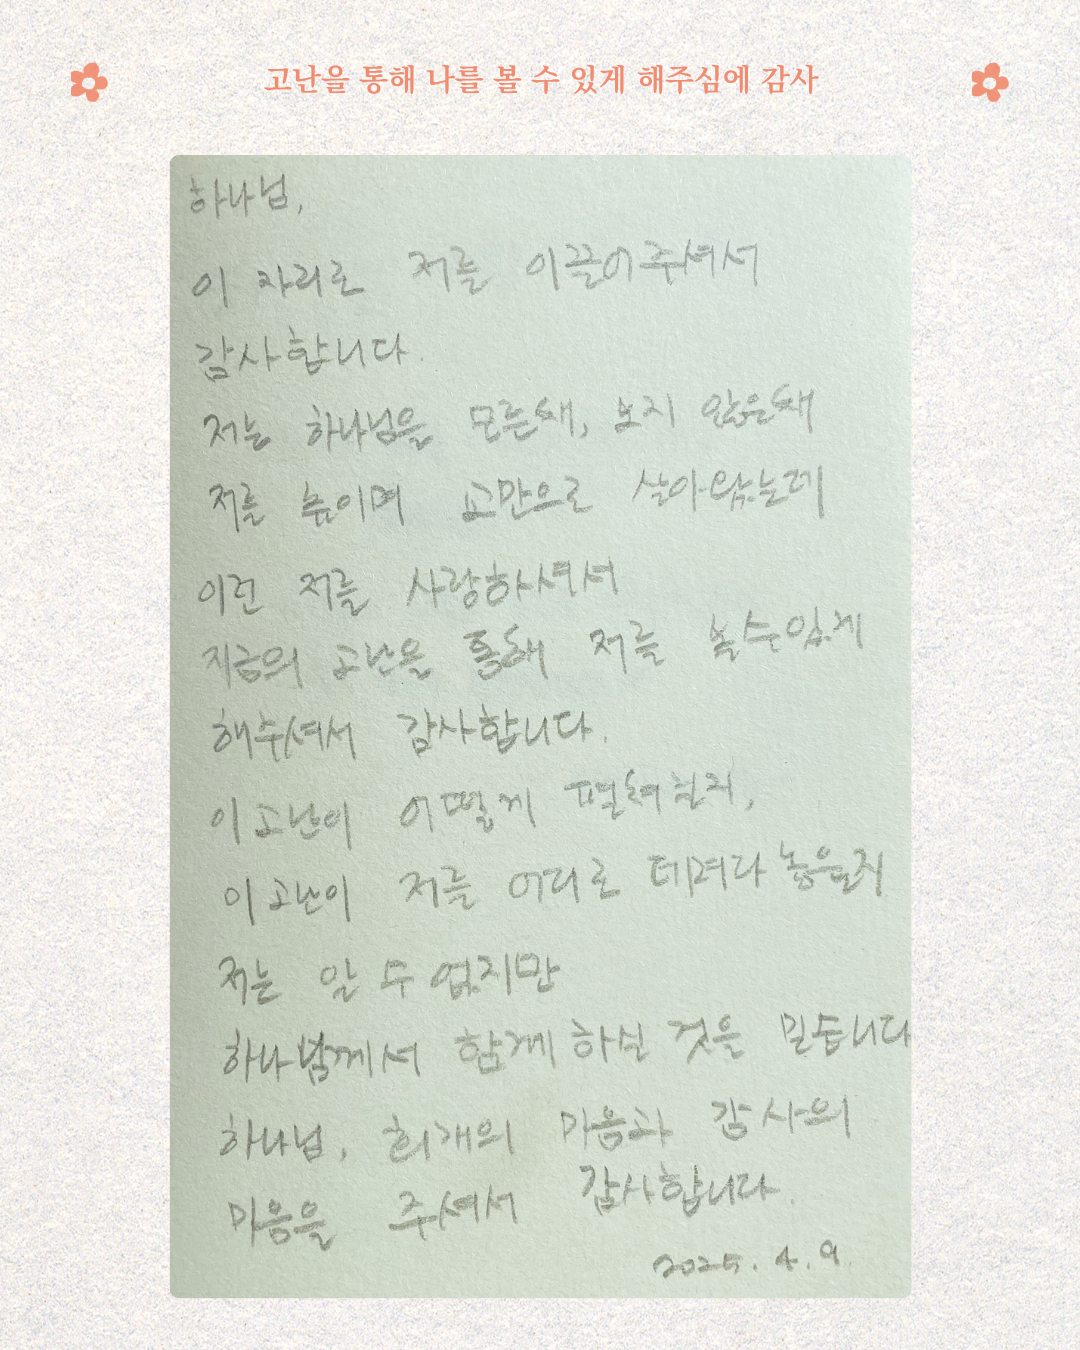 고난을 통해 나를 볼 수 있게 해주심에 감사
하나님,
이 자리로 저를 이끌어주셔서
감사합니다.
저는 하나님을 모른채, 보지 않은채
저를 높이며 교만으로 살아왔는데
이런 저를 사랑하셔서
지금의 고난을 통해 저를 볼수있게
해주셔서 감사합니다.
이 고난이 어떻게 펼쳐질지,
이 고난이 저를 어디로 데려다 놓을지
저는 알 수 없지만
하나님께서 함께 하실 것을 믿습니다
하나님, 회개의 마음과 감사의
마음을 주셔서 감사합니다.
2025. 4. 9.